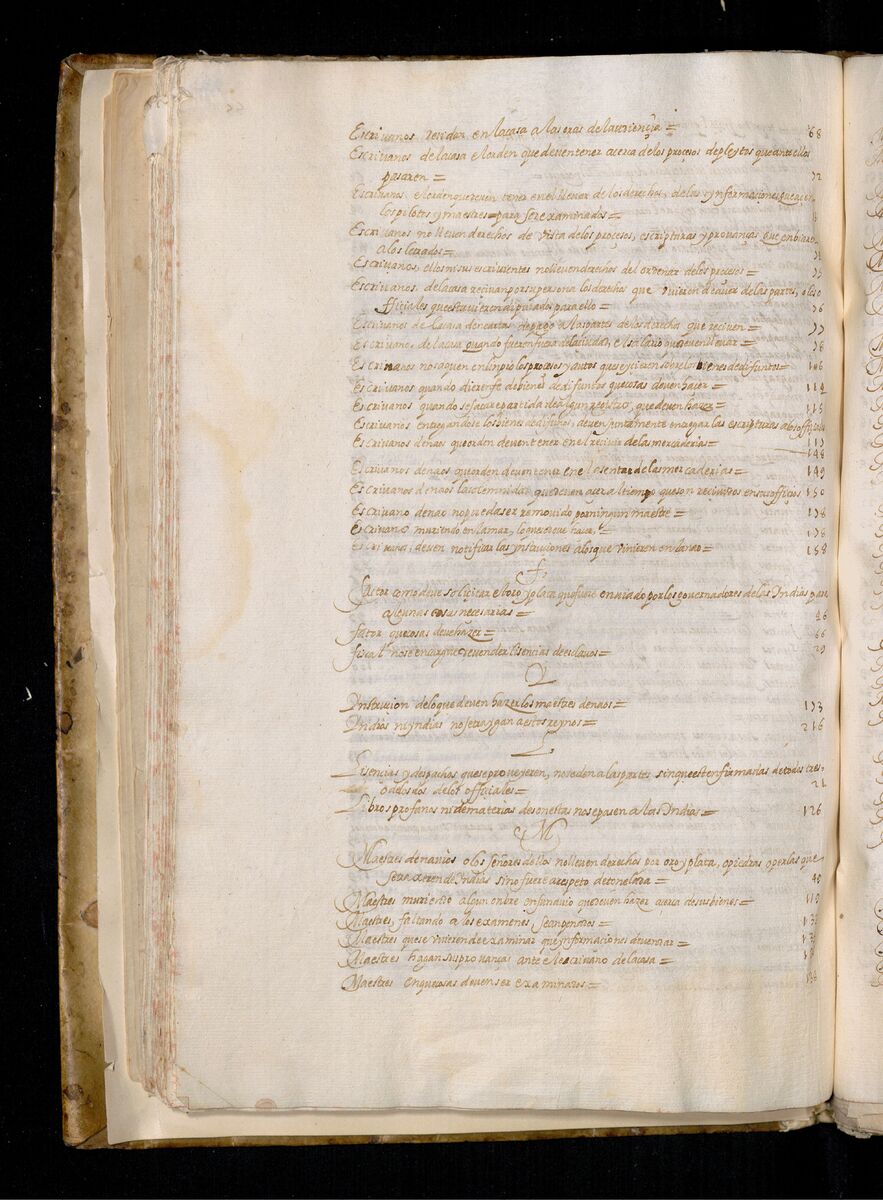 Escrivanos residan en la casa a las oras de la audiençia = 68
Escrivanos de la casa el orden que deven tener acerca de los proçesos de pleytos que ante ellos
pasaren = 72
Escrivanos el orden que deven tener en el llevar de los derechos de las ynformaçiones que haçen
los pilotos y maestres para ser examinados =
Escrivanos no lleven derechos de vista de los proçesos, escripturas y provanças que enbiaren
a los letrados =
Escrivanos, ellos ni sus escrivientes no lleven derechos del ordenar de los proçesos = 75
Escrivanos de la casa reçivan por su persona los derechos que uvieren de aver de las partes, o los o
ffiçiales que estuvieren diputados para ello = 76
Escrivanos de la casa den cartas de pago a las partes de los derechos que reciven = 77
Escrivanos de la casa quando fueren fuera de la ciudad, el salario que deven llevar = 78
Escrivanos no saquen en limpio los proçesos y autos que se hizieren sobre los bienes de difuntos = 106
Escrivanos quando dieren fe de bienes de difuntos que cosas deven hazer = 112
Escrivanos quando se sacare partida de algun registro, que deven hazer = 115
Escrivanos entregandose los bienes de difuntos, deven juntamente entregar las escripturas a los offiçiales
Escrivanos de naos que orden deven tener en el recivir de las mercaderias = 117
148
Escrivanos de naos que orden deven tener en el asentar de las mercaderias = 149
Escrivanos de naos la solemnidad que deven açer al tiempo que son recividos en sus offiçios 150
Escrivano de nao no pueda ser removido por ningun maestre = 178
Escrivano muriendo en la mar, lo que se deve hazer, = 178
Escrivanos, deven notificar las ynstruçiones a los que vinieren en la nao = 188
F,
Fator como deve soliçitar el oro y plata que fuere enviado por los governadores de las Indias para
algunas cosas necesarias = 46
Fator que cosas deve hazer = 66
Fiscal no se encargue de vender lisencias de esclavos = 29
Y
Ynstruçion de lo que deven hazer los maestres de naos = 173
Yndios ni yndias no se traygan a estos reynos = 216
L,
Lisençias y despachos que se proveyeren, no se den a las partes sin que esten firmadas de todos tres
o a dos de los offiçiales = 21
Libros profanos ni de materias desonestas no se pasen a las Indias = 126
M
Maestres de navios o los señores dellos no lleven derechos por oro y plata, o piedras o perlas que
se traxeren de Indias sino fuere a respeto de tonelada = 40
Maestres muriendo algun onbre en su navio que deven hazer açerca de sus bienes = 110
Maestres, faltando a los examenes, sean penados =
Maestres que se uvieren de examinar que ynformaciones deven dar =
Maestres hagan sus provanças ante el escrivano de la casa =
Maestres en que cosas deven ser examinados =